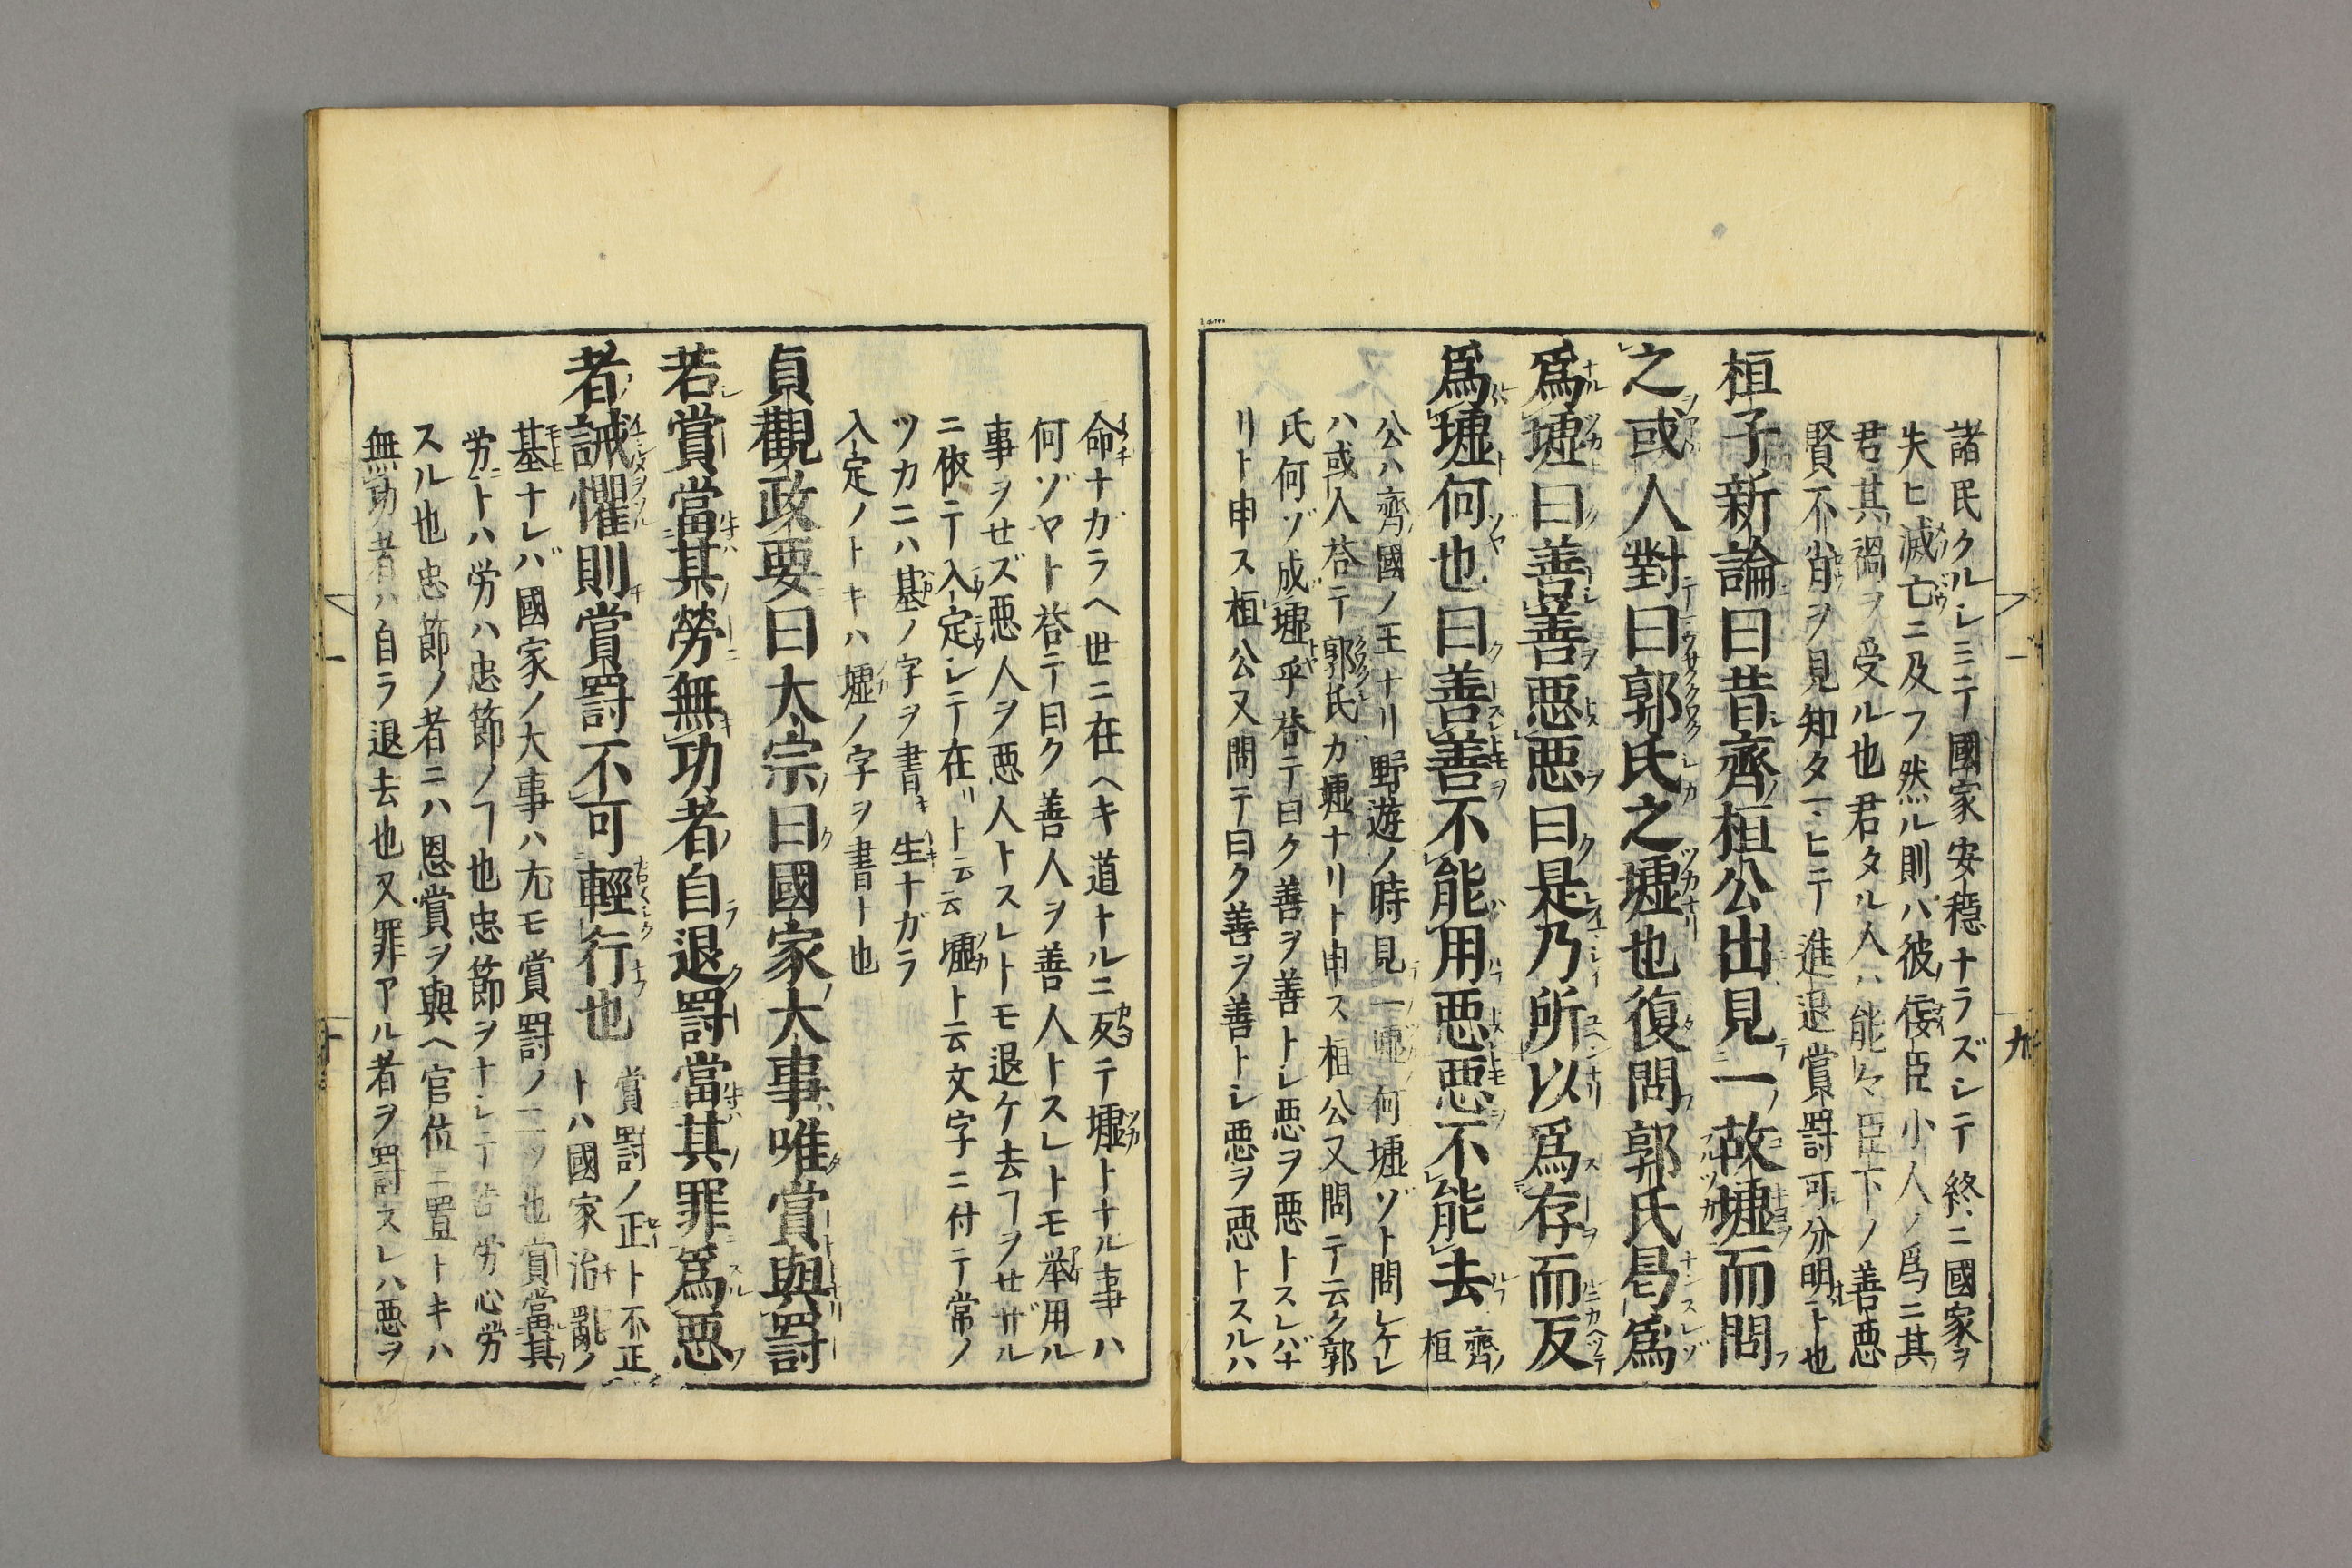 諸民クルシミテ國家安穏ナラズシテ終ニ國家ヲ
失ヒ滅亡ニ及フ然ル則ハ彼佞臣小人ノ爲ニ其
君其禍ヲ受ル也君タル人ハ能々臣下ノ善悪
賢不肖ヲ見知タマヒテ進退賞罰可分明ト也
桓子新論曰昔齊桓公出見一故墟而問
之或人對曰郭氏之墟也復問郭氏曷爲
爲墟曰善善悪悪曰是乃所以爲存而反
爲墟何也曰善善不能用悪悪不能去 齊ノ桓
公ハ齊國ノ王ナリ野遊ノ時見一墟何墟ゾト問シケレ
ハ或人荅テ郭氏ガ墟ナリト申ス桓公又問テ云ク郭
氏何ゾ成墟乎荅テ曰ク善ヲ善トシ悪ヲ悪トスレバナ
リト申ス桓公又問テ曰ク善ヲ善トシ悪ヲ悪トスルハ
九
命ナガラヘ世ニ在ヘキ道トルニ反テ墟トナル事ハ
何ゾヤト荅テ曰ク善人ヲ善人トスレトモ举用ル
事ヲセズ悪人ヲ悪人トスレトモ退ケ去フヲせザル
ニ依テ入定シテ在リト云云墟ト云文字ニ付テ常ノ
ツカニハ基ノ字ヲ書キ生ナガラ
入定ノトキハ墟ノ字ヲ書ト也
貞觀政要曰太宗曰國家大事唯賞與罰
若賞當其勞無功者自退罰當其罪爲悪
者誡懼則賞罰不可輕行也 賞罰ノ正ト不正
トハ國家治亂ノ
基ナレバ國家ノ大事ハ尤モ賞罰ノ二ツ也賞當其
労トハ労ハ忠節ノフ也忠節ヲナシテ苦労心労
スル也忠節ノ者ニハ恩賞ヲ與ヘ官位ニ置トキハ
無功者ハ自ラ退去也又罪アル者ヲ罰スレハ悪ヲ